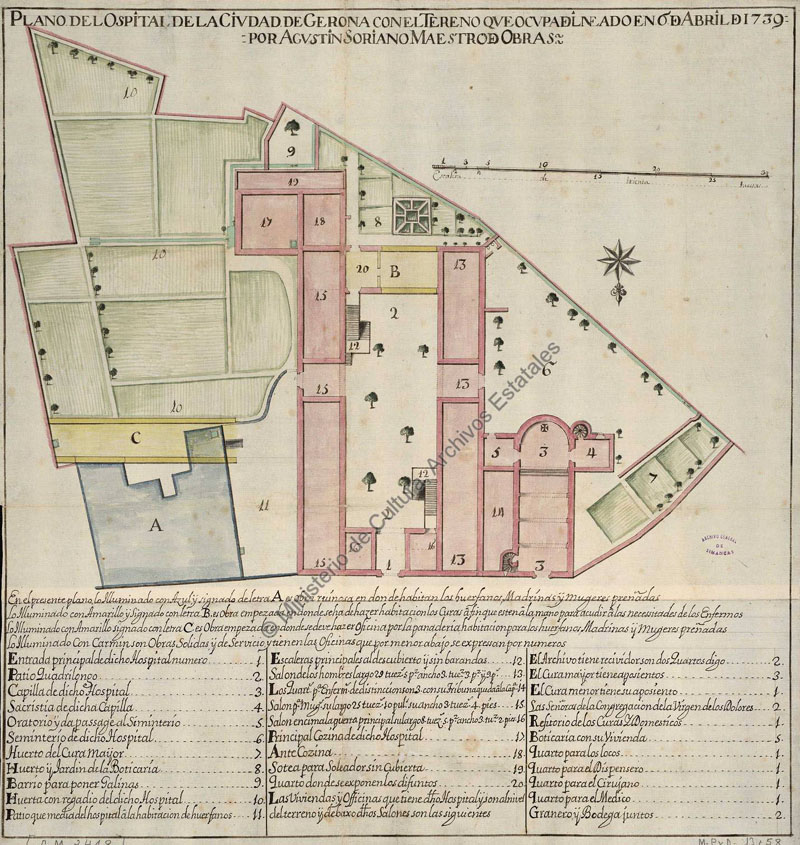 PLANO DEL OSPITAL DE LA CIVDAD DE GERONA CON EL TERENO QVE OCVPA DLNEADO EN 6 D ABRIL D 1739
POR AGVSTIN SORIANO MAESTRO D OBRAS
10
9
1 3 5 10 15 20 25
Escala de treinta
19
17 18 8
10
20 B 13
15 2
12
6
15 13
10
C
5 3 4
12
7
11 14
A
ARCHIVO GENERAL
DE
SIMANCAS
15 1 16 13 3
© Ministerio de Cultura. Archivos Estatales
En el presente plano lo Illuminado con Azul y signado de letra A es ruinosa en don de habitan los huerfanos, Madrinas y Mugeres preñadas
lo Illuminado con Amarillo y Signado con letra B. es obra empezada en donde se ha de hazer habitacion los Curas
lo Illuminado con Amarillo signado con letra C es Obra empezada en donde se deve hazer Oficina por la panaderia habitacion para los huerfanos Madrinas y Mugeres preñadas
lo Illuminado Con Carmin son Obras Solidas y de Servicio y tienen las Oficinas que por menor abajo se expresan por numeros
Entrada principal de dicho Hospital numero 1.
Patio Quadrilongo 2.
Capilla de dicho Hospital 3.
Sacristia de dicha Capilla 4.
Oratorio y da passage al Siminterio 5.
Semintierio de dicho Hospital 6.
Huerto del Cura maijor 7.
Huerto y Jardin de la Boticaria 8.
Barrio para poner Galinas 9.
Huerta con regadio del dicho Hospital 10.
Patio que media del hospital a la habitacion de huerfanos 11.
Escaleras principales al descubierto y sin barandas 12.
Salon de los hombres largo 13.
14
15
Salon encima la puerta principal 16
Principal Cozina de dicho hospital 17
Ante Cozina 18.
Sotea para Soleador sin Cubierta 19.
Quarto donde se exponen los difuntos 20.
Las Viviendas y Officinas que tiene dho Hospital y son al nivel
del terreno y debaxo dhos Salones son las siguientes
El Archivo tiene recividor son dos Quartos digo 2.
El Cura mayor tiene aposientos 3.
El Cura menor tiene su aposiento 1.
Sas Señoras de la Congregacion de la Virgen de los Dolores 2.
Refitorio de los Curas y Domesticos 1.
Boticaria con su Vivienda 5.
Quarto para los locos 1.
Quarto para el Dispensero 1.
Quarto para el Cirujano 1.
Quarto para el Medico 1.
Granero y Bodega juntos 2.